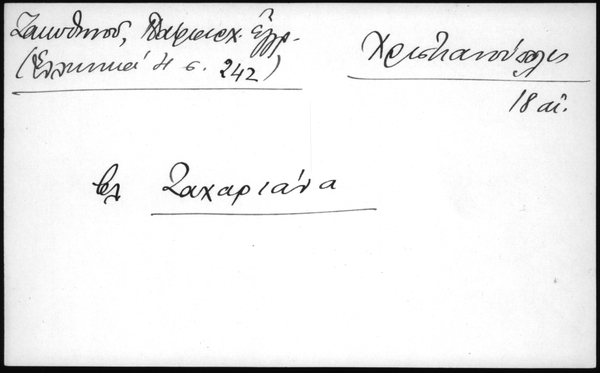 Ζακυθηνού, Πατριαρχ. Έγγρ.
(Ελληνικά 4 σ. 242)
Χριστιανούπολις
18 αι.
βλ Ζαχαριάνα